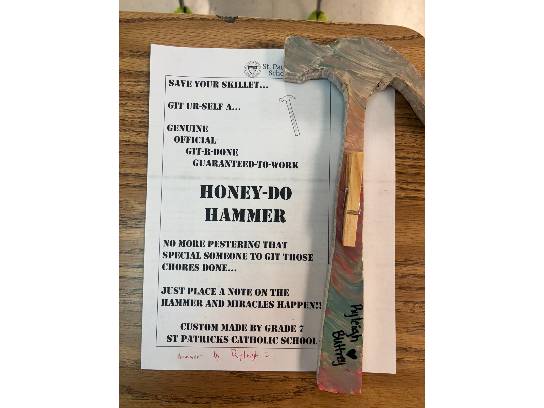 St. Pat
Scho
SAVE YOUR SKILLET...
GIT UR-SELF A...
GENUINE
OFFICIAL
GIT-R-DONE
GUARANTEED-TO-WORK
HONEY-DO
HAMMER
NO MORE PESTERING THAT
SPECIAL SOMEONE TO GIT THOSE
CHORES DONE...
JUST PLACE A NOTE ON THE
HAMMER AND MIRACLES HAPPEN!!
CUSTOM MADE BY GRADE 7
ST PATRICKS CATHOLIC SCHOOL
Ryleigh